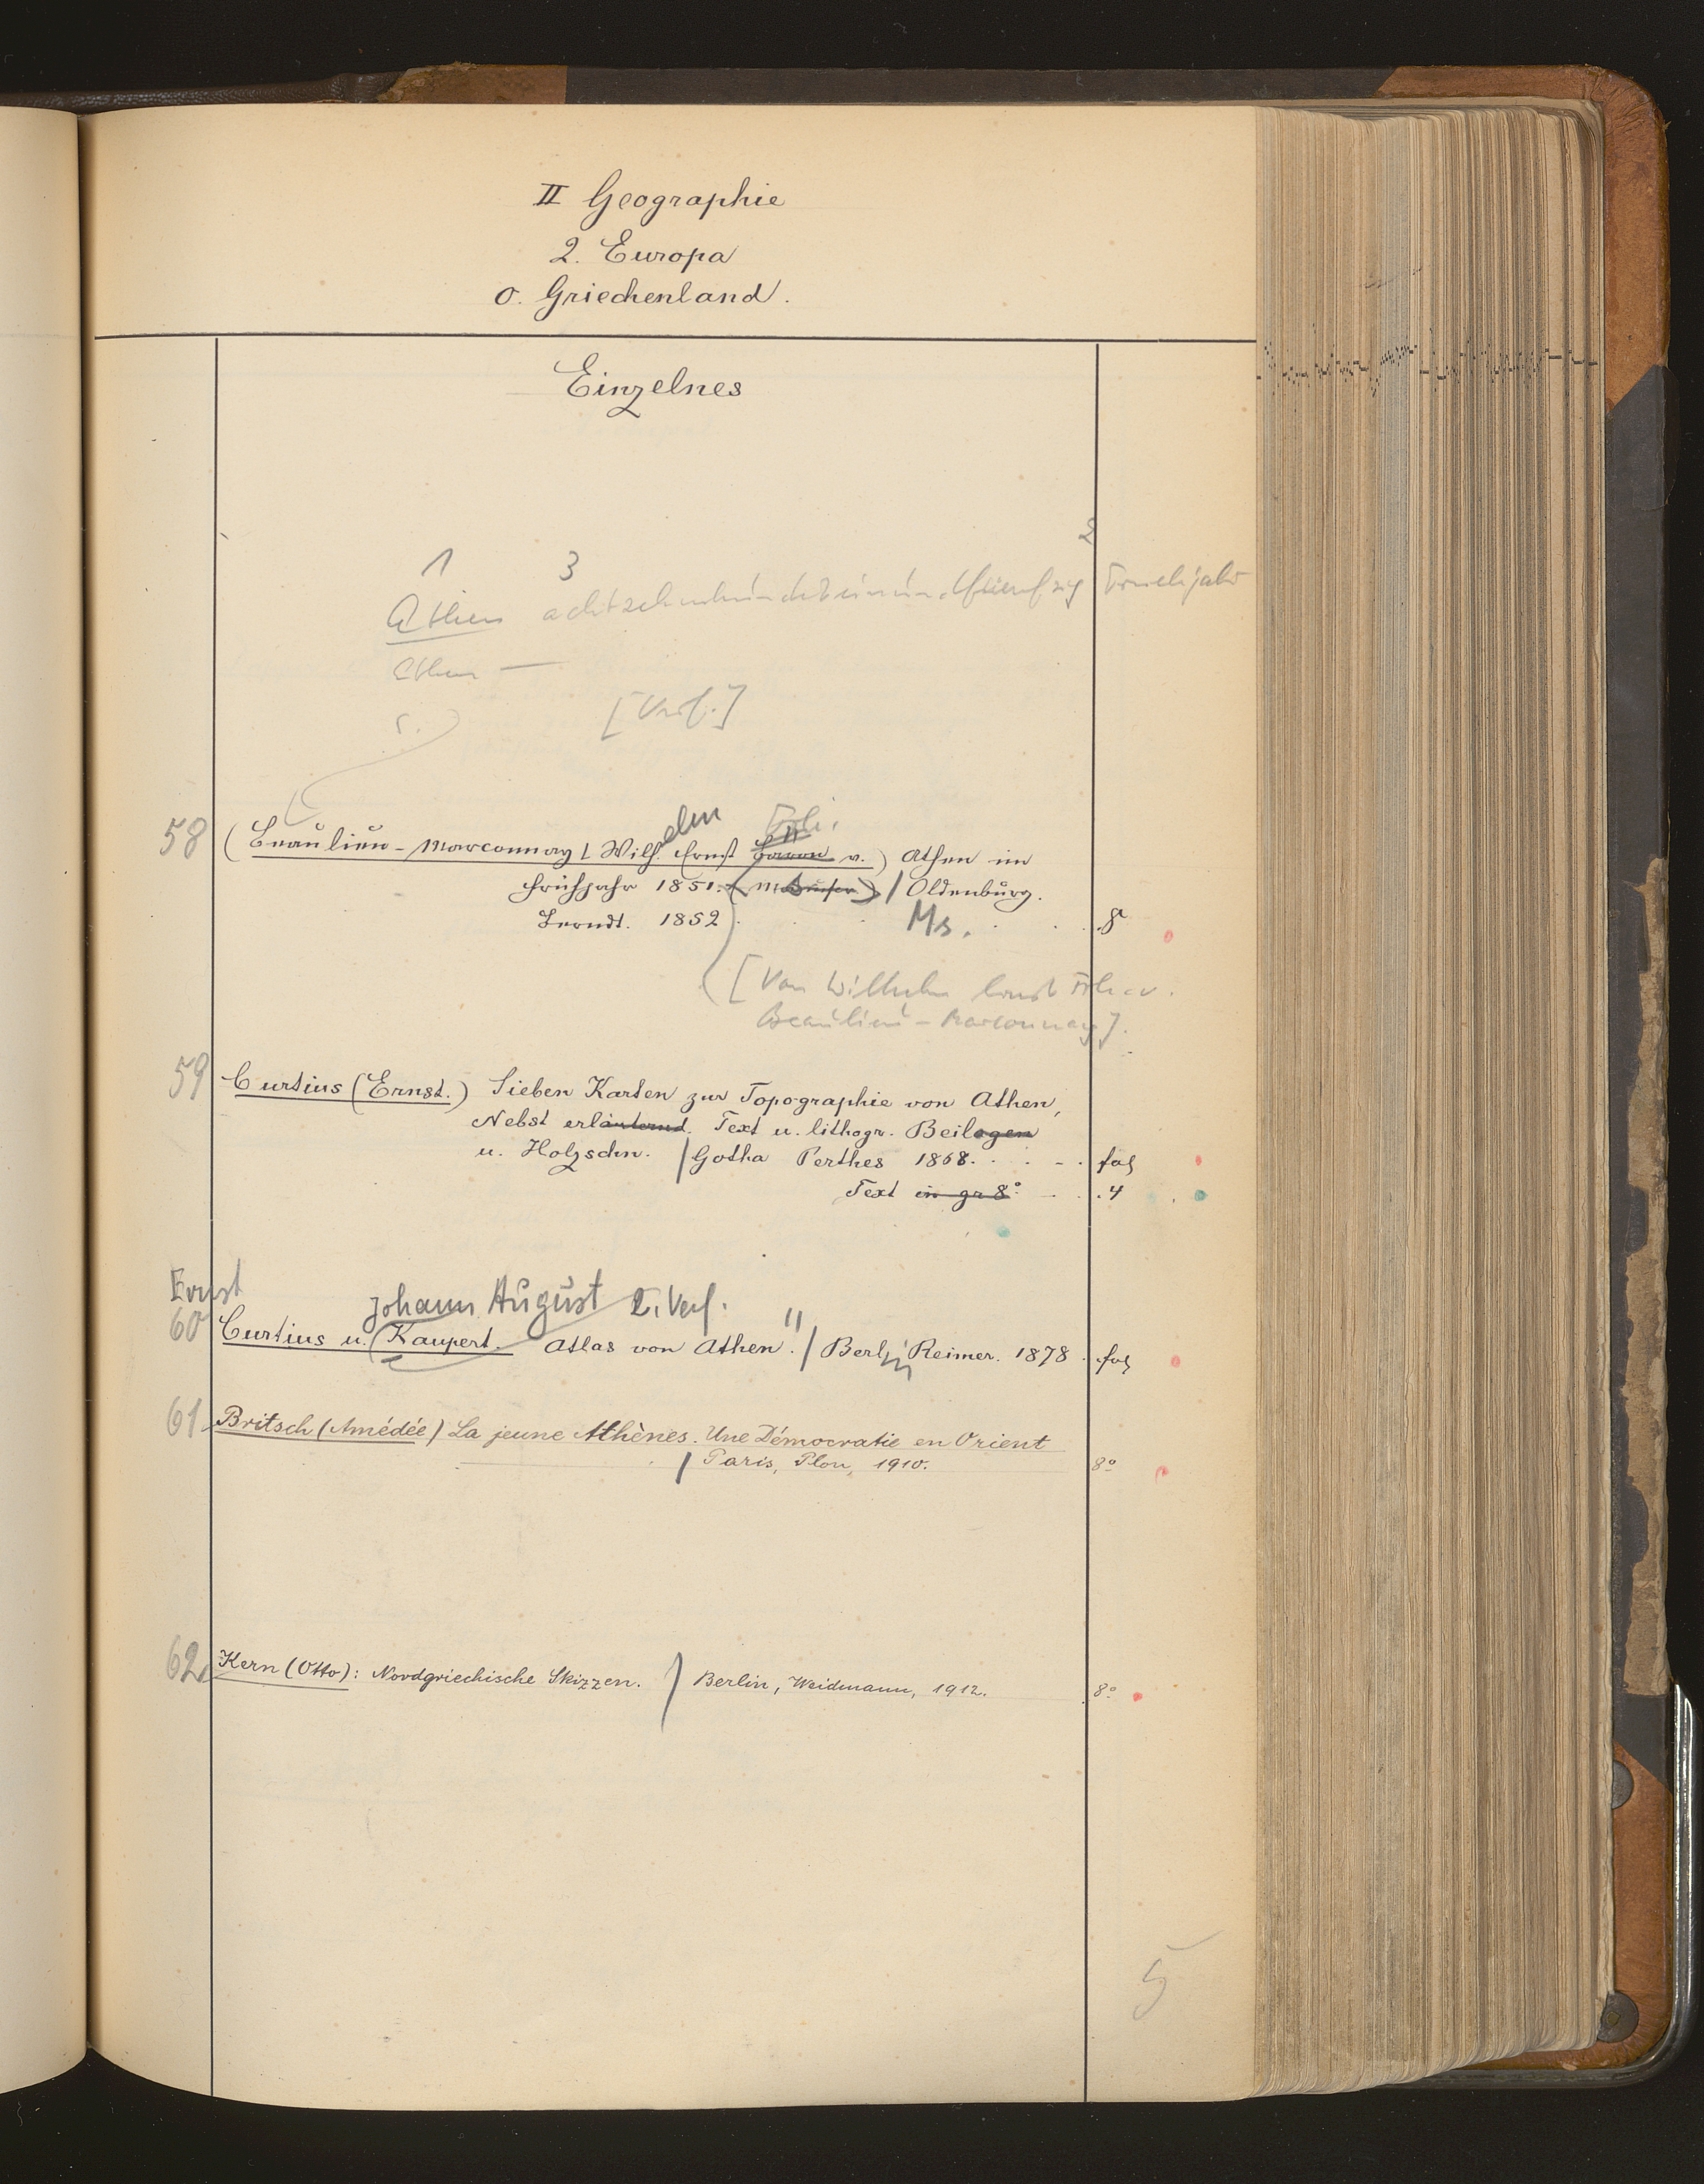 II Geographie
2. Europa
o. Griechenland.
Einzelnes
1 3 2
Athen achtzehnhunderteinundfuenfzig Fruehjahr
Athen —
[Verf.]
elm Frh.
58 (Beaulieu-Marconnay (Wilh. Ernst v.) Athen im
Frühjahr 1851. / Oldenburg.
Berndt. 1852 Ms. 8
[Von Wilhelm Ernst Frh. v.
Beaulieu-Marconnay].
59 Curtius (Ernst.) Sieben Karten zur Topographie von Athen,
Nebst erläuternd. Text u. lithogr. Beilagen
u. Holzschn. / Gotha Perthes 1868. fol
Text in gr 8° 4
Ernst Johann August 2. Verf.
60 Curtius u. (Kaupert. Atlas von Athen. / Berlin Reimer. 1878. fol
61 Britsch (Amédée) La jeune Athènes. Une Démocratie en Orient
/ Paris, Plon, 1910. 8°
62 Kern (Otto): Nordgriechische Skizzen. / Berlin, Weidmann, 1912. 8°
5